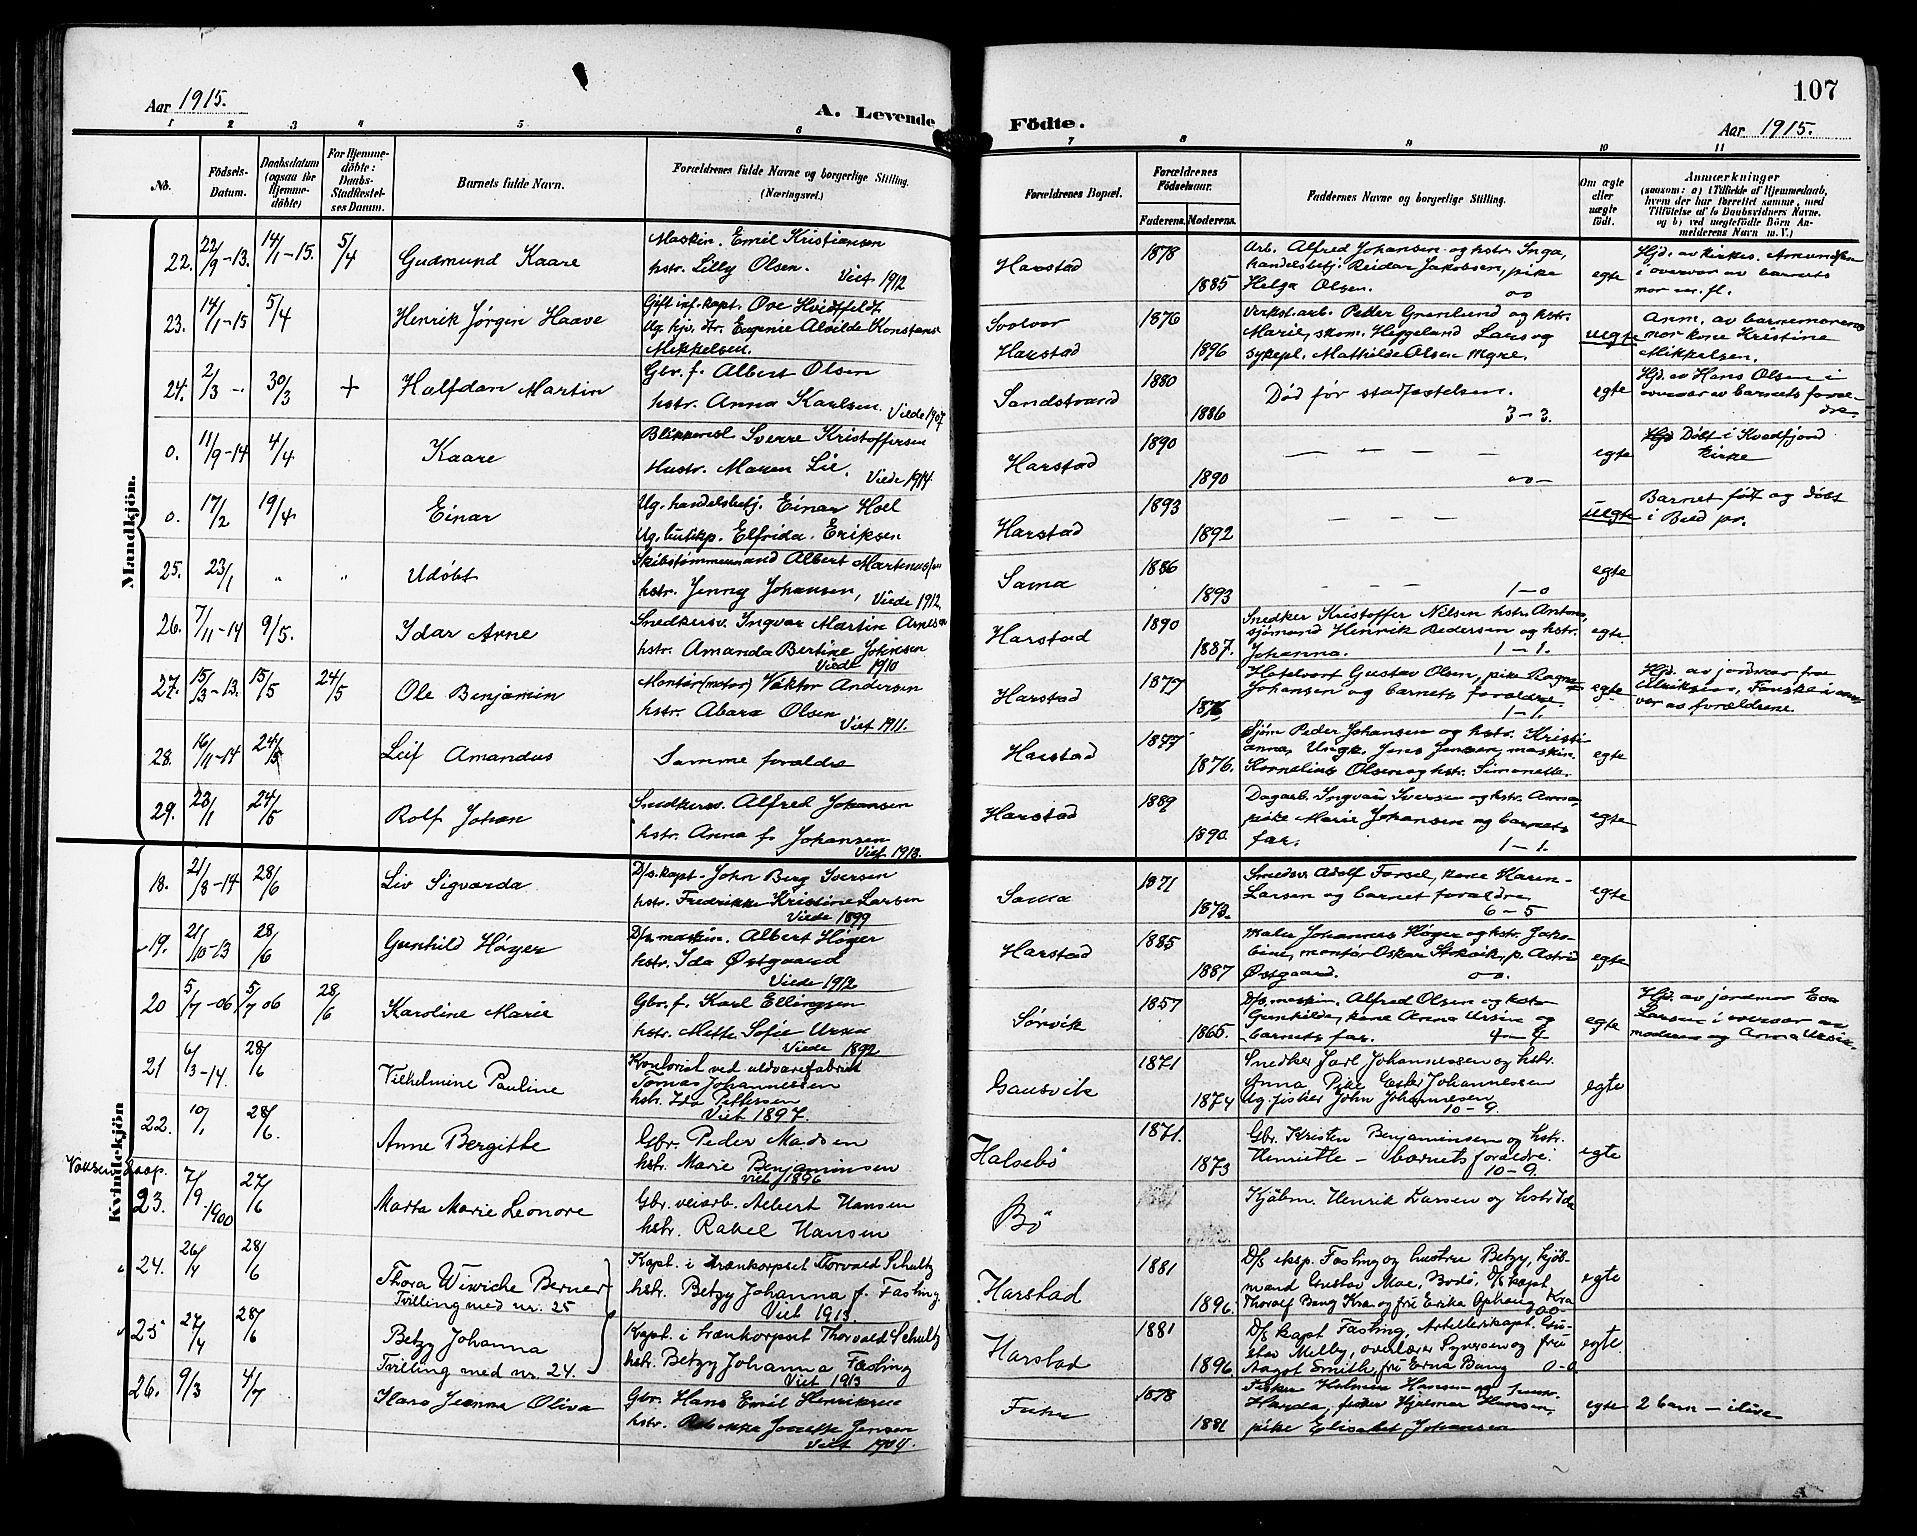 Aar 1915.
A. Levende
1 2 3 4 5 6
No.
Födsels-
Datum.
Daabsdatum
(ogsaa for
Hjemme-
döbte)
For Hjemme-
döbte:
Daabs-
Stadfæstel-
ses Datum.
Barnets fulde Navn.
Forældrenes fulde Navne og borgerlige Stilling.
(Næringsvei.)
Mandkjön.
22. 22/9-13. 14/1-15. 5/4 Gudmund Kaare
Maskin. Emil Kristiansen
hstr. Lilly Olsen. Viet 1912
23. 14/1-15 5/4 Henrik Jørgen Haave
Gift inf. kapt. Ove Hvidtfeldt
Ug. hjv. dtr. Eugenie Alvilde Konstanse
Mikkelsen.
24. 2/3 -. 30/3 + Halfdan Martin
Gbr. f. Albert Olsen
hstr. Anna Karlsen. Viede 1907
0. 11/9-14 4/4 Kaare
Blikkensl Sverre Kristoffersen
Hustr. Maren Lie. Viede 1914
0. 17/2 19/4 Einar
Ug. handelsbetj. Einar Hoel
Ug. butikp. Elfrida Eriksen
25. 23/1 " " Udöbt
Skibstømmermand Albert Martinussen
hstr. Jenny Johansen, Viede 1912
26. 7/11-14 9/5. Idar Arne
Snedkersv. Ingvar Martin Arnesen
hstr. Amanda Bertine Johnsen
Viede 1910
27. 15/3-13. 15/5 24/5 Ole Benjamin
Montør (motor) Viktor Andersen
hstr. Abara Olsen
Viet 1911.
28. 16/11-14 24/5 Leif Amandus
Samme forældre
29. 23/1 24/5 Rolf Johan
Snedkersv. Alfred Johansen
hstr. Anna f. Johansen
Viet 1913.
Kvindekjön
18. 21/8-14 28/6 Liv Sigvarda
D/s. kapt. John Berg Iversen
hstr. Fredrikke Kristine Larsen
Viede 1899
19. 21/10-13 28/6 Gunhild Høyer
D/s. maskin. Albert Høyer
hstr. Ida Østgaard
Viede 1912
20 5/7-06 5/7 06 28/6 Karoline Marie
Gbr. f. Karl Ellingsen
hstr. Mette Sofie Ursin
Viede 1892
21 6/3-14. 28/6 Vilhelmine Pauline
Kontorist ved uldvarefabrik
Tomas Johannessen
hstr. Ida Pettersen
Viet 1897.
22. 10/1 28/6. Anne Bergitte
Gbr. Peder Madsen
hstr. Marie Benjaminsen
viet 1896
Voksen Daap.
23. 7/9-1900 27/6 Marta Marie Leonore
Gbr. veiarb. Albert Hansen
hstr. Rakel Hansen
24. 26/4 28/6 Thora Wiwiche Berner
Tvilling med nr. 25
Kapt. i trænkorpset Torvald Schultz
hstr. Betzy Johanna f. Fasting.
Viet 1913.
25 27/4 28/6 Betzy Johanna
Tvilling med nr. 24.
Kapt. i trænkorpset Thorvald Schultz
hstr. Betzy Johanna Fasting
Viet 1913
26. 9/3 4/7 Jeanna Oliva
Gbr. Hans Emil Henriksen
hstr. Jensen
Viet 1904.
107
Födte.
Aar 1915.
7 8 9 10 11
Forældrenes Bopæl.
Forældrenes
Födselsaar.
Faderens. Moderens.
Faddernes Navne og borgerlige Stilling.
Om ægte
eller
uægte
födt.
Anmærkninger
(saasom: a) i Tilfælde af Hjemmedaab,
hvem der har forrettet samme, med
Tilföielse af to Daabsvidners Navne,
og b) ved uegtefödte Börn An-
melderens Navn m. V.)
Harstad 1878 1885
Arb. Alfred Johansen og hstr. Inga,
handelsbetj. Reidar Jakobsen, pike
Helga Olsen. oo
egte
Hjd. av kirkes. Amundsen
i overvær av barnets
mor m. fl.
Svolvær 1876
Harstad 1896
Verkst. arb. Petter Grønlund og hstr.
Marie, skom. Heggeland Lars og
sykepl. Mathilde Olsen Myre.
uegte
Anm. av barnemorens
mor kone Kristine
Mikkelsen.
Sandstrand 1880 1886
Død før stadfæstelsen.
3-3.
egte
Hjd. av Hans Olsen i
overvær av barnets foræl-
dre
Harstad 1890 1890
- - - -
oo-
egte
Døbt i Kvæfjord
kirke
Harstad 1893 1892
- - - -
uegte
Barnet født og døbt
i Beid pr.
Sama 1886 1893
- - -
1-0
egte
Harstad 1890 1887.
Snedker Kristoffer Nilsen hstr. Antona,
sjømand Henrik Pedersen og hstr.
Johanna. 1-1.
egte
Harstad 1877 1876
Hotelvært Gustav Olsen, pike Ragna
Johansen og barnets forældre
1-1.
egte
Hjd. av jordmor fru
Ulriksen, Fauske i over-
vær av forældrene.
Harstad 1877 1876.
Sjøm Peder Johansen og hstr. Kristi-
anna, Ungk. Jens Jensen, maskin.
Kornelius Olsen og hstr. Simonette.
egte
Harstad 1889 1890
Dagarb. Ingvald Iversen og hstr. Anna,
pike Marie Johansen og barnets
far. 1-1.
egte
Sama 1871 1873.
Smedsv. Adolf Forsel, kone Karen
Larsen og barnet forældre
6-5
egte
Harstad 1885 1887
Maler Johannes Høyer og hstr. Jako-
bine, montør Oskar Stokvik, p. Astrid
Østgaard. oo.
egte
Sørvik 1857 1865.
D/s. maskin. Alfred Olsen og hstr
Gunhilde, kone Anna Ursin og
barnets far. 4-4
egte
Hjd. av jordmor Eva
Larsen i overvær av
moderen og Anna Ursin.
Gausvik 1871 1874
Snedker Jarl Johannessen og hstr.
Anna Pike Ester Johannessen
Ug. fisker John Johannesen
10-9.
egte
Halsebø 1871. 1873
Gbr. Kristen Benjaminsen og hstr.
Henriette - barnets forældre.
10-9.
egte
Bø
Kjøbm. Henrik Larsen og hstr Ida
Harstad 1881 1896.
D/s eksp. Fasting og hustru Betzy, kjøb-
mand Gustav Moe, Bodø, D/s kapt.
Thoralf Bang Kra. og fru Erika Kra
oo
egte
Harstad 1881 1896
D/s kapt Fasting, Artillerikapt. Gu-
stav Melby, overlærer Syversen og fru
Aagot Smith, fru Erna Bang 0-0
egte
1878 1881
Fisker Hansen og hstr.
fisker Hjalmar Hansen,
pike Elisabet Johansen
egte
2 barn - ilive